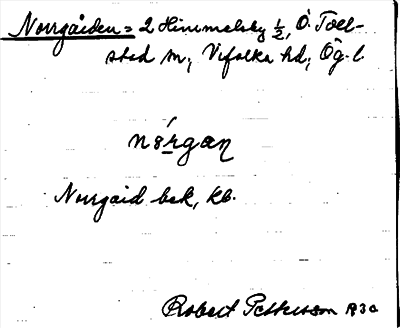 Norrgården = 2 Himmelsby ½, Ö. Toll-
stad sn, Vifolka hd, Ög. l.
nǿrgan
Norrgård bek, kb.
Robert Pettersson 1930